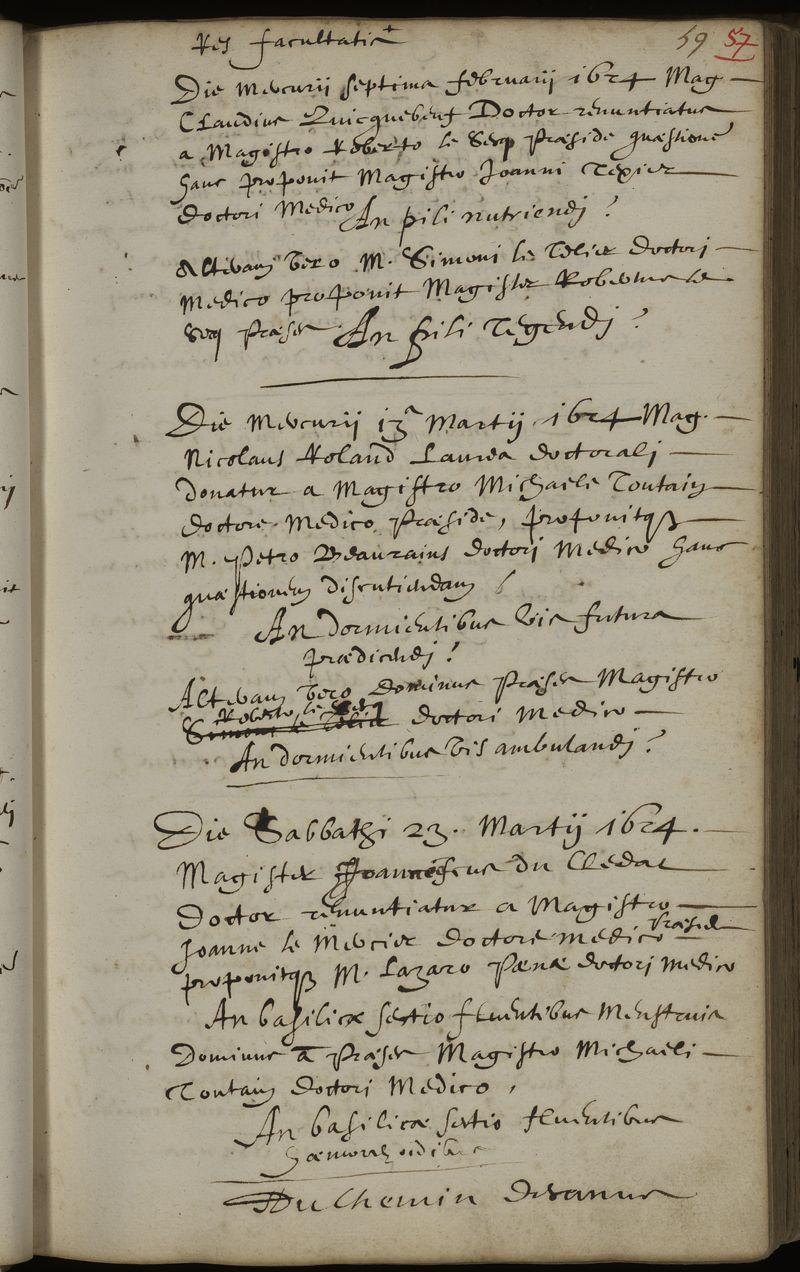 Res facultatis
59 57
Die Mercurii septima februarii 1624 Mag
Claudius Quicquebeuf Doctor renuntiatus
a Magistro Roberto le Secq Præside quæstionē
hanc proponit Magistro Joanni Texier
doctori Medico An pili nutriendj?
Alteram Vero M. Simoni le Telier doctorj
Medico proponit Magister Robertus le
Secq Præses An pili Tegendj?
Die Mercurij 13ᵃ Martij 1624 Mag.
Nicolaus Roland Laurea doctoralj
Donatur a Magistro Michaele Toutain
doctore Medico Præside, proponitqꝫ
M. Petro Beaurains doctorj Medico hanc
quæstionem discutiendam
An dormientibus Vis futura
prædicendj?
Alteram Vero Dominus Præses Magistro
Roberto le Secq
Simoni le Telier doctori Medico
An dormientibus Vis ambulandj?
Die Sabbathi 23. Martij 1624.
Magister du Cledat
Doctor renuntiatur a Magistro
Joanne le Mercier doctore medico Præside
proponitqꝫ M. Lazaro Pænæ doctorj medico
An basilicæ sectio fluentibus Menstruis
Dominus a Præses Magistro Michaeli
Toutain doctori Medico,
An basilicæ sectio fluentibus
hæmorrhoidibus
Du Chemin decanus